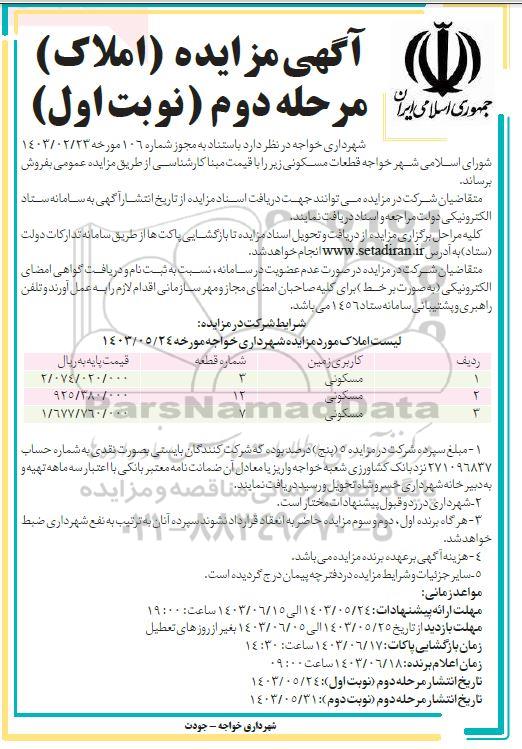 جمهوری اسلامی ایران
آگهی مزایده (املاک)
مرحله دوم (نوبت اول)
شهرداری خواجه در نظر دارد باستناد به مجوز شماره ۱۰۶ مورخه ۱۴۰۳/۰۲/۲۳
شورای اسلامی شهر خواجه قطعات مسکونی زیر را با قیمت مبنا کارشناسی از طریق مزایده عمومی بفروش
برساند.
متقاضیان شرکت در مزایده می توانند جهت دریافت اسناد مزایده از تاریخ انتشار آگهی به سامانه ستاد
الکترونیکی دولت مراجعه و اسناد دریافت نمایند.
کلیه مراحل برگزاری مزایده از دریافت و تحویل اسناد مزایده تا بازگشایی پاکت ها از طریق سامانه تدارکات دولت
(ستاد) به آدرس www.setadiran.ir انجام خواهد شد.
متقاضیان شرکت در مزایده در صورت عدم عضویت در سامانه، نسبت به ثبت نام و دریافت گواهی امضای
الکترونیکی (به صورت بر خط) برای کلیه صاحبان امضای مجاز و مهر سازمانی اقدام لازم را به عمل آورند و تلفن
راهبری و پشتیبانی سامانه ستاد ۱۴۵۶ می باشد.
شرایط شرکت در مزایده:
لیست املاک مورد مزایده شهرداری خواجه مورخه ۱۴۰۳/۰۵/۲۴
ردیف کاربری زمین شماره قطعه قیمت پایه به ریال
۱ مسکونی ۳ ۲/۰۷۴/۰۲۰/۰۰۰
۲ مسکونی ۱۲ ۹۲۵/۳۸۰/۰۰۰
۳ مسکونی ۷ ۱/۶۷۷/۷۶۰/۰۰۰
۱- مبلغ سپرده شرکت در مزایده ۵ (پنج) درصد بوده که شرکت کنندگان بایستی بصورت نقدی به شماره حساب
۲۷۱۰۹۶۸۳۷ نزد بانک کشاورزی شعبه خواجه واریز یا معادل آن ضمانت نامه معتبر بانکی با اعتبار سه ماهه تهیه و
به دبیرخانه شهرداری خسروشاه تحویل و رسید دریافت نمایند.
۲- شهرداری در رد و قبول پیشنهادات مختار است.
۳- هر گاه برنده اول، دوم و سوم مزایده حاضر به انعقاد قرارداد نشوند سپرده آنان به ترتیب به نفع شهرداری ضبط
خواهد شد.
۴- هزینه آگهی بر عهده برنده مزایده می باشد.
۵- سایر جزئیات و شرایط مزایده در دفترچه پیمان درج گردیده است.
مواعد زمانی:
مهلت ارائه پیشنهادات: ۱۴۰۳/۰۵/۲۴ الی ۱۴۰۳/۰۶/۱۵ ساعت: ۱۹:۰۰
مهلت بازدید از تاریخ ۱۴۰۳/۰۵/۲۵ الی ۱۴۰۳/۰۶/۰۵ بغیر از روزهای تعطیل
زمان بازگشایی پاکات: ۱۴۰۳/۰۶/۱۷ ساعت: ۱۴:۳۰
زمان اعلام برنده: ۱۴۰۳/۰۶/۱۸ ساعت ۰۹:۰۰
تاریخ انتشار مرحله دوم (نوبت اول): ۱۴۰۳/۰۵/۲۴
تاریخ انتشار مرحله دوم (نوبت دوم): ۱۴۰۳/۰۵/۳۱
شهرداری خواجه - جودت
ParsNamadData